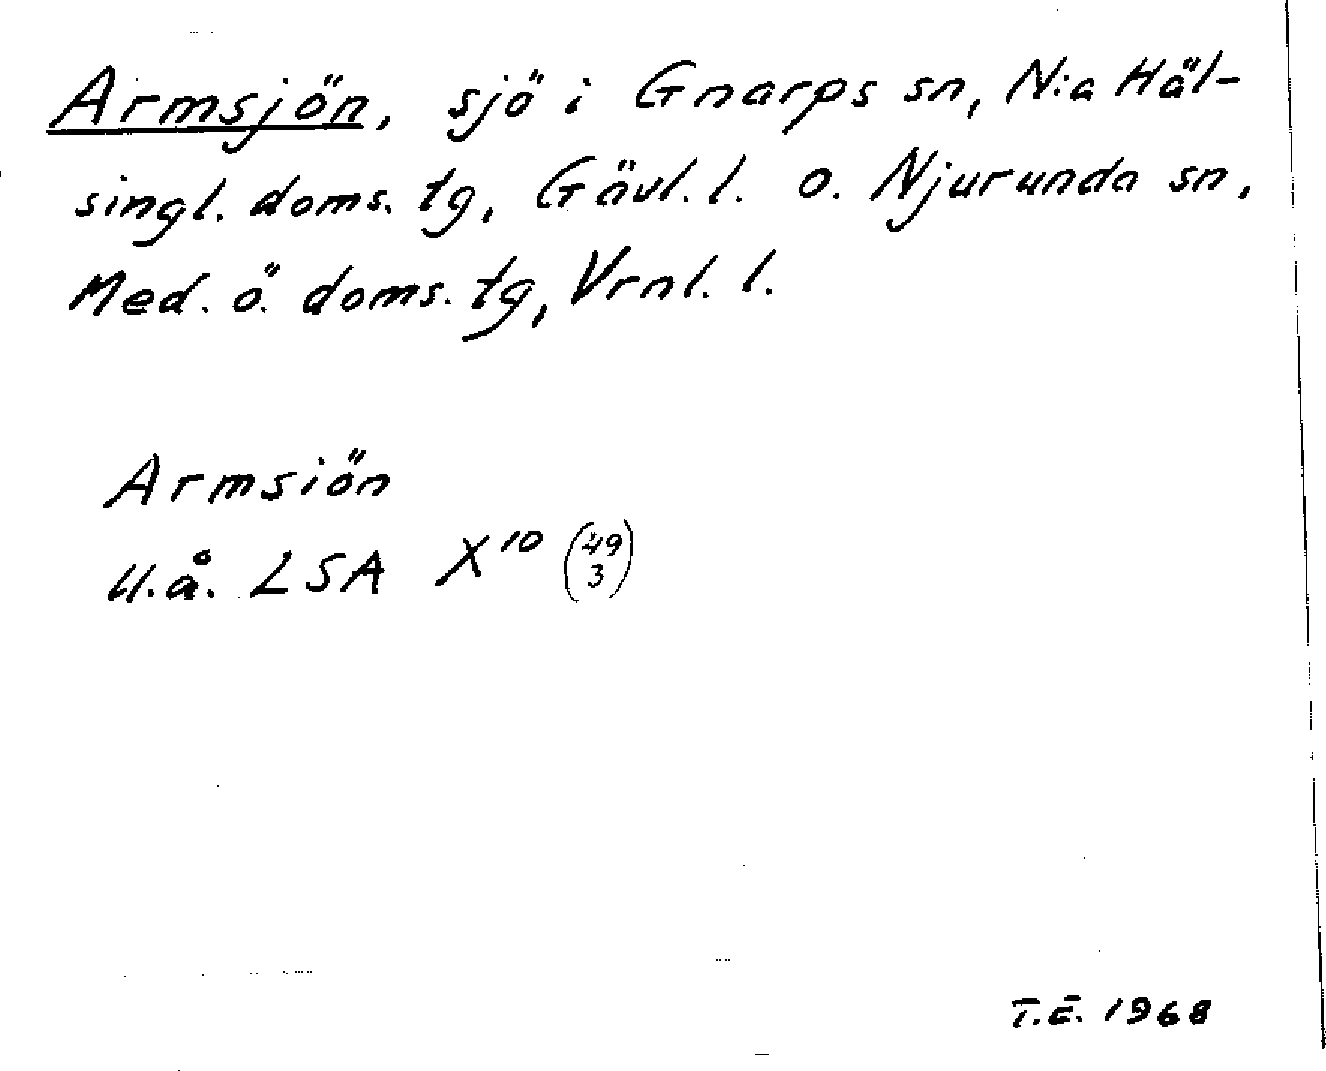 Armsjön, sjö i Gnarps sn, N:a Häl-
singl. doms. tg, Gävl. l. o. Njurunda sn,
Med. ö. doms. tg, Vrnl. l.
Armsiön
U.å. LSA X¹⁰ (49
3)
T.E. 1968